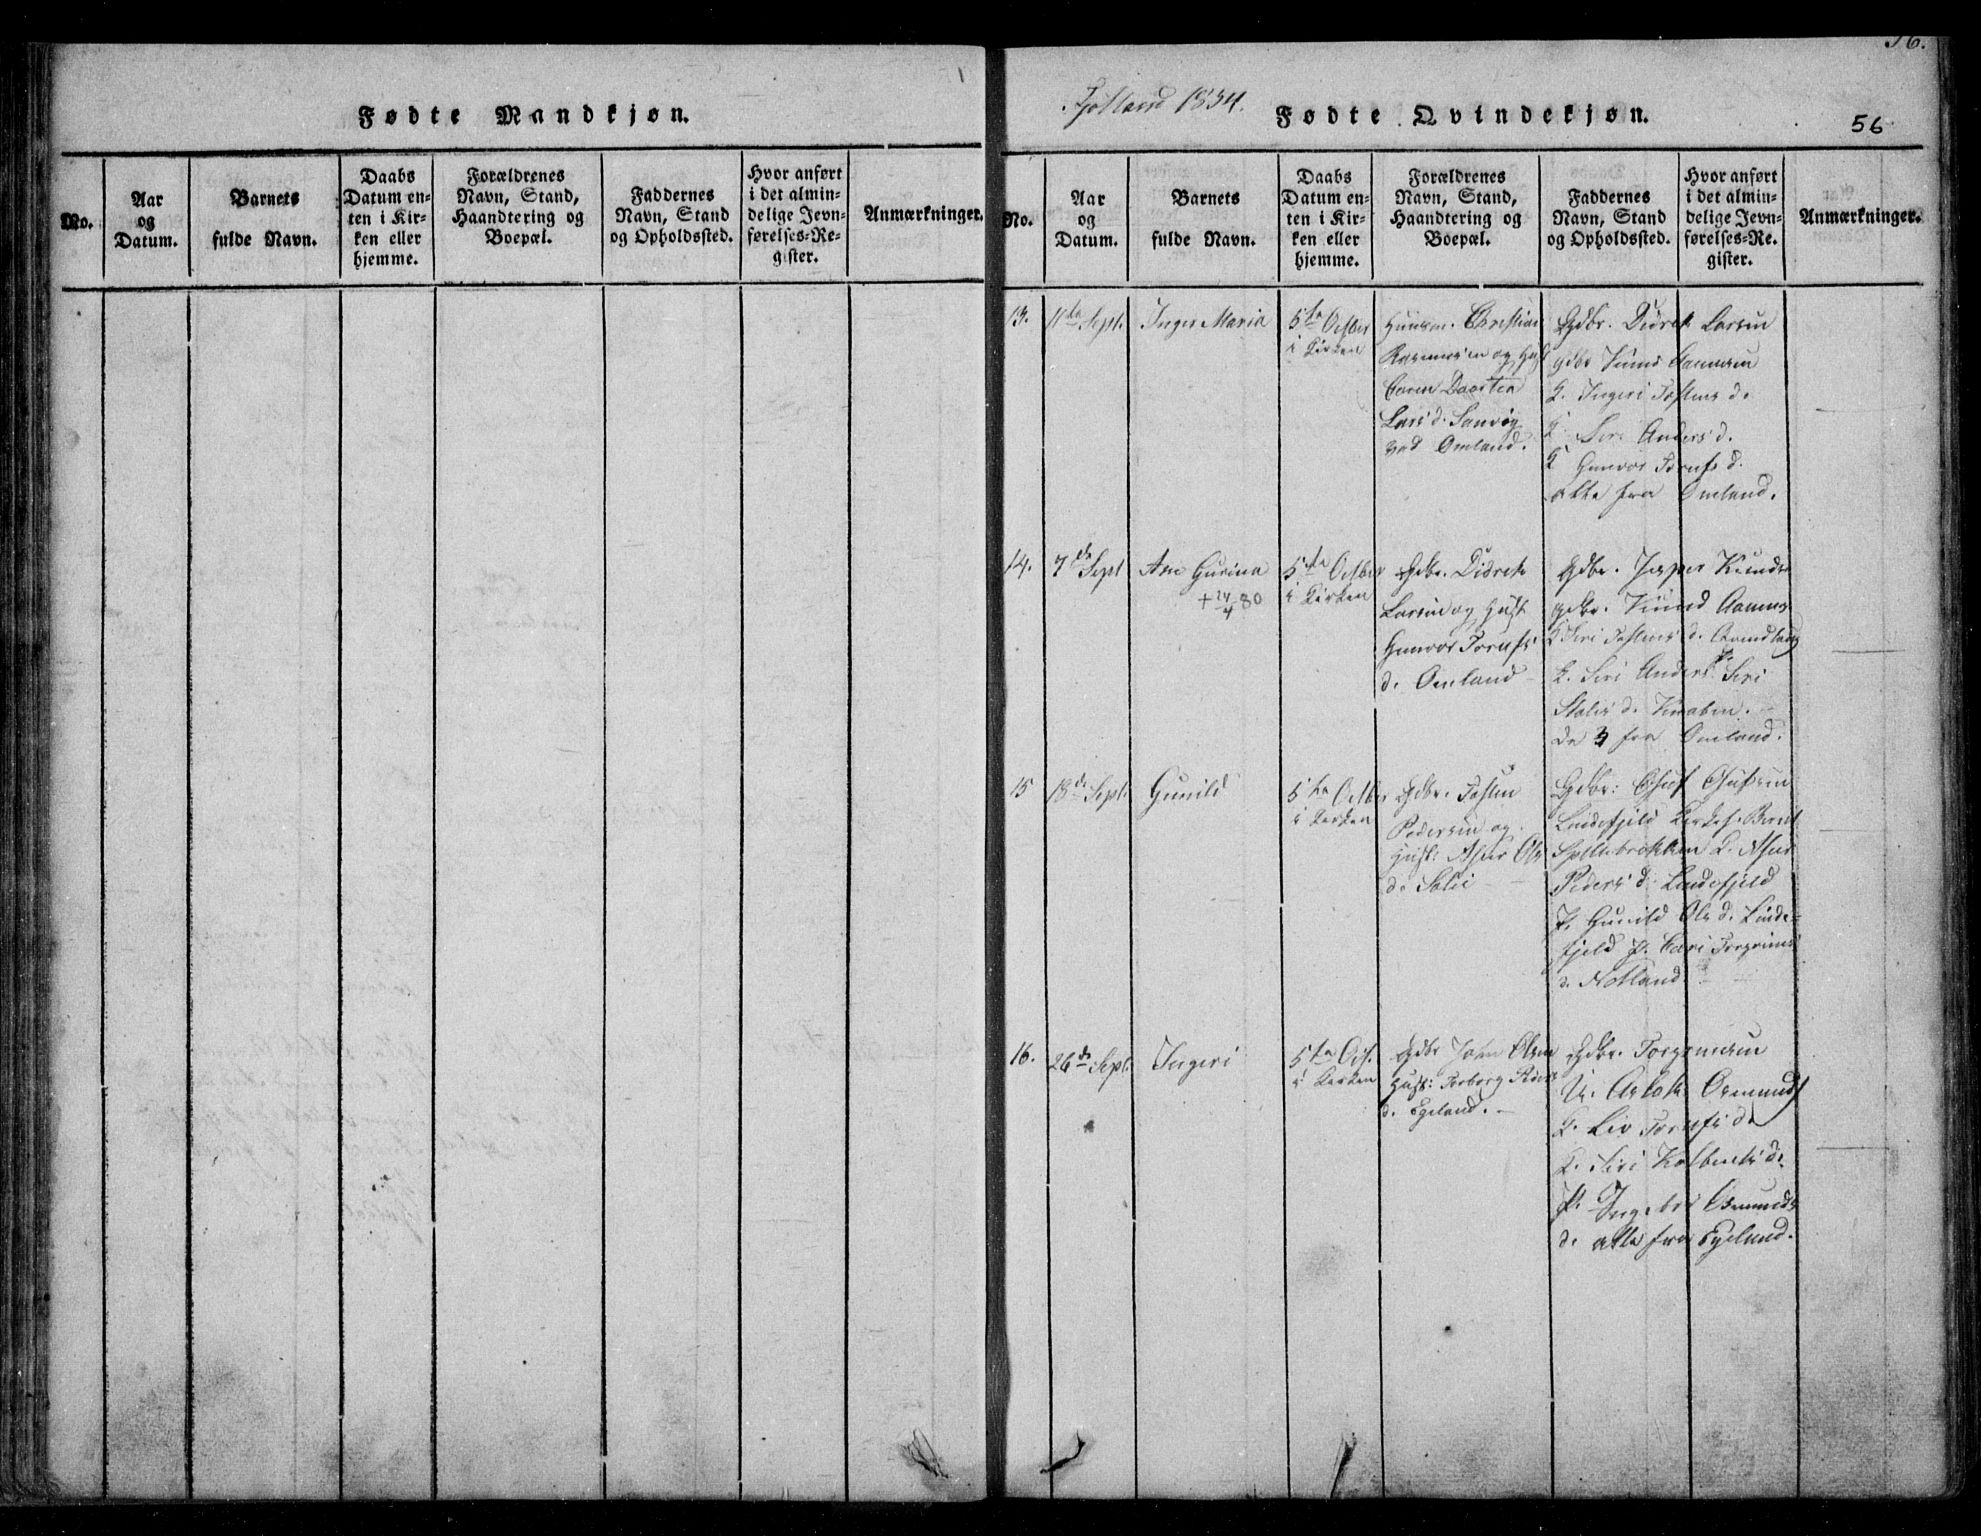 Fødte Mandkjøn.
No.
Aar
og
Datum.
Barnets
fulde Navn.
Daabs
Datum en-
ten i Kir-
ken eller
hjemme.
Forældrenes
Navn, Stand,
Haandtering og
Boepæl.
Faddernes
Navn, Stand
og Opholdssted.
Hvor anført
i det almin-
delige Jevn-
førelses-Re-
gister.
Anmærkninger.
Fjotland 1834.
Fødte Qvindekjøn.
56.
56
No.
Aar
og
Datum.
Barnets
fulde Navn.
Daabs
Datum en-
ten i Kir-
ken eller
hjemme.
Forældrenes
Navn, Stand,
Haandtering og
Boepæl.
Faddernes
Navn, Stand
og Opholdssted.
Hvor anført
i det almin-
delige Jevn-
førelses-Re-
gister.
Anmærkninger.
13.
11te Sept.
Inger Maria
5te Octber
i Kirken
Huusm. Christian
Rasmusen og Hust
Caren Dorthea
Lars d.
ved Omland.
Gdbr. Didrik Larsen
gdbr Knud Aanensen
K. Ingeri Tostens d.
K. Siri Anders d.
K Gunvor Torufs d.
alle fra Omland.
14.
7de Sept
Ane Gurina
+ 24/4 80
5te Octber
i Kirken
Gdbr. Didrik
Larsen og Hust
Gunvor Torufs
d. Omland
Gdbr. Jesper Knuds
gdbr. Knud Aanens
K Siri Tostens d.
K. Siri Anders P. Siri
Stales d. Knaben.
de 3 fra Omland.
15
18de Sept.
Gunild
5te Octber
i Kirken
Gdbr. Tosten
Pedersen og
Hust: Aser Ols
d. Solli
Gdbr:
Lindefjeld Kirkes. Berent
K. Aser
Peders d. Lindefjeld
P. Gunild Ols d. Linde-
fjeld P. Kari Torgrims
d. Netland
16.
26de Sept.
Ingeri
5te Oct.
i Kirken
Gdbr John Olsen
Hust: Torborg
d. Egeland.
Gdbr.
U. Aslak Osmunds
K. Liv Torufs d.
K. Siri Kolbents d.
P. Osmunds
d. alle fra Egeland.